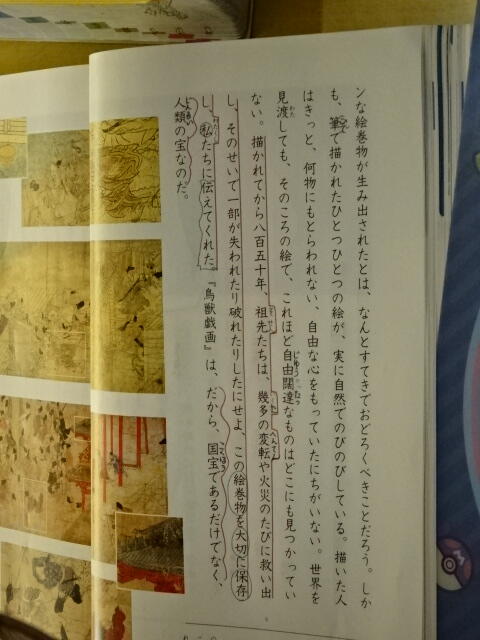 ンな絵巻物が生み出されたとは、なんとすてきでおどろくべきことだろう。しか
も、筆で描かれたひとつひとつの絵が、実に自然でのびのびしている。描いた人
はきっと、何物にもとらわれない、自由な心をもっていたにちがいない。世界を
見渡しても、そのころの絵で、これほど自由闊達なものはどこにも見つかってい
ない。描かれてから八百五十年、祖先たちは、幾多の変転や火災のたびに救い出
し、そのせいで一部が失われたり破れたりしたにせよ、この絵巻物を大切に保存
し、私たちに伝えてくれた。『鳥獣戯画』は、だから、国宝であるだけでなく、
人類の宝なのだ。